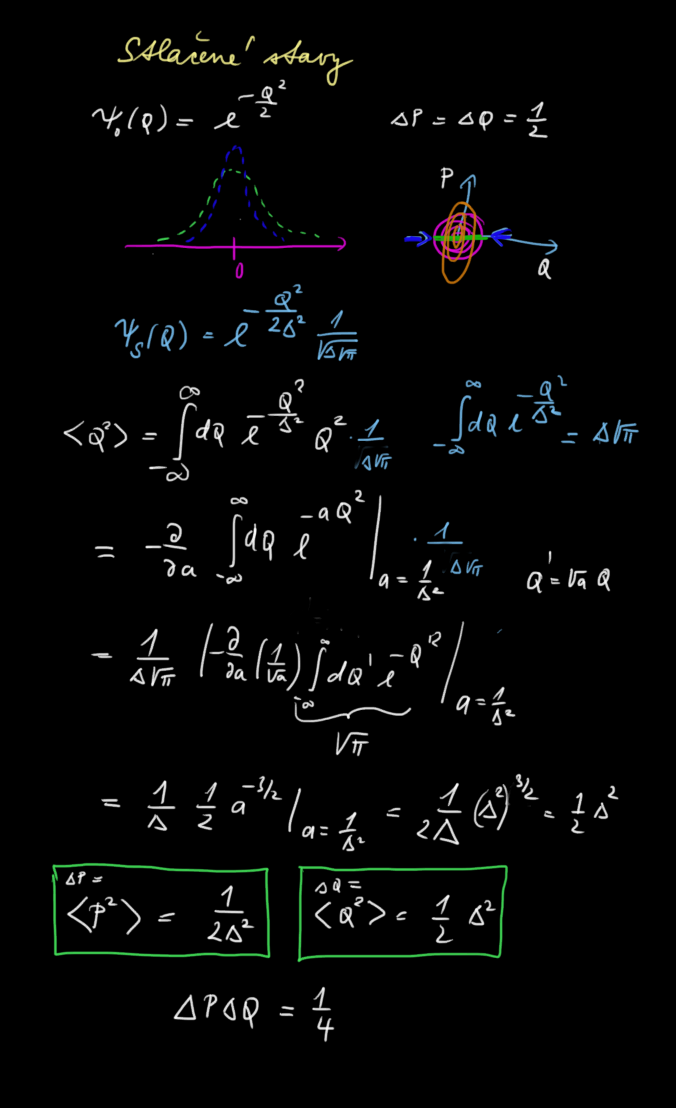 Stlačené stavy
Ψ₀(Q) = e^{-Q²/2}    ΔP = ΔQ = 1/2
P
Q
0
Ψ_S(Q) = e^{-Q²/2Δ²} 1/√(Δ√π)
<Q²> = ∫_{-∞}^{∞} dQ e^{-Q²/Δ²} Q² · 1/(Δ√π)    ∫_{-∞}^{∞} dQ e^{-Q²/Δ²} = Δ√π
= -∂/∂a ∫_{-∞}^{∞} dQ e^{-aQ²} |_{a = 1/Δ²} · 1/(Δ√π)    Q' = √a Q
= 1/(Δ√π) (-∂/∂a (1/√a) ∫_{-∞}^{∞} dQ' e^{-Q'²} |_{a = 1/Δ²}
√π
= 1/Δ 1/2 a^{-3/2} |_{a = 1/Δ²} = 1/(2Δ) (Δ²)^{3/2} = 1/2 Δ²
ΔP =
<P²> = 1/(2Δ²)
ΔQ =
<Q²> = 1/2 Δ²
ΔPΔQ = 1/4